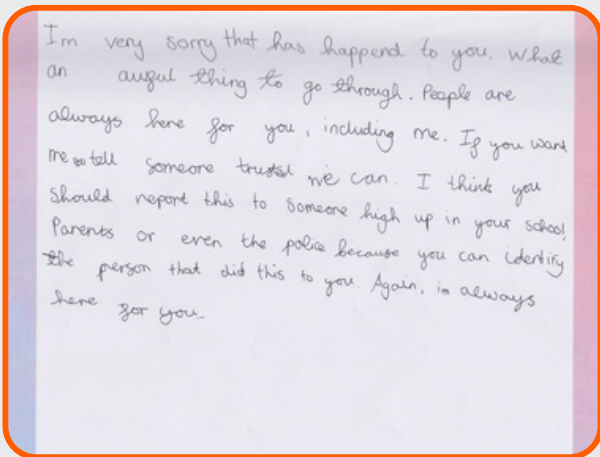 Im very sorry that has happend to you. What
an awful thing to go through. People are
always here for you, including me. If you want
me to tell someone trusted we can. I think you
should report this to someone high up in your school,
Parents or even the police because you can identify
the person that did this to you. Again, im always
here for you.